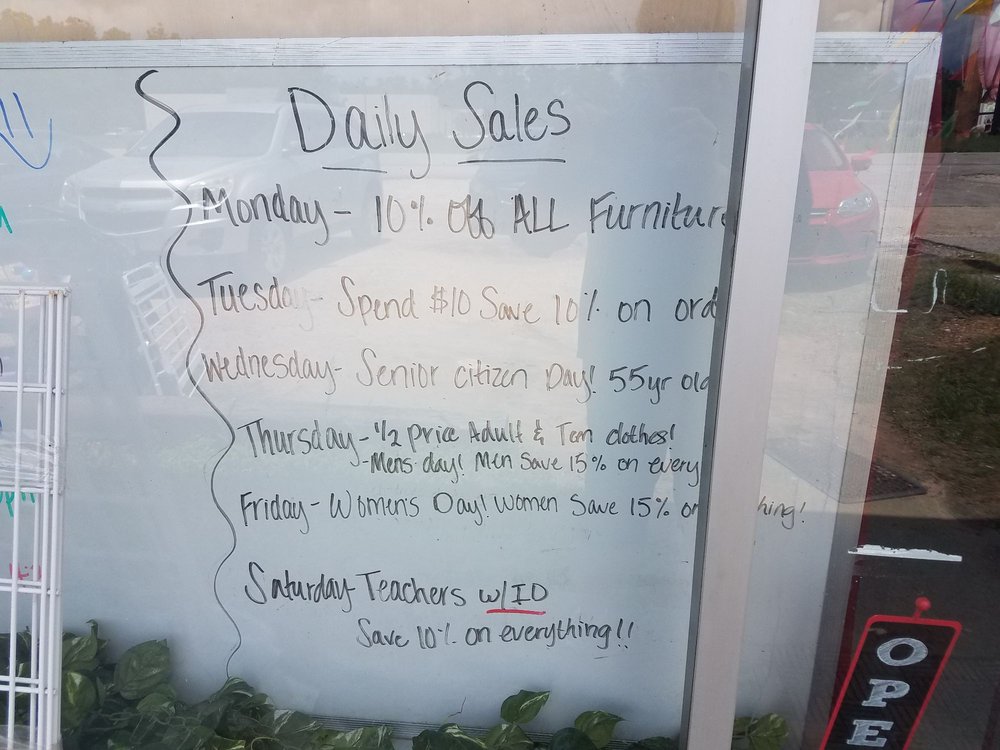 Daily Sales
Monday - 10% Off ALL Furniture
Tuesday - Spend $10 Save 10% on ord
Wednesday - Senior citizen Day! 55yr old
Thursday - 1/2 price Adult & Teen clothes!
- Mens day! Men Save 15% on every
Friday - Women's Day! Women Save 15% on hing!
Saturday - Teachers w/ID
Save 10% on everything!!
OPE